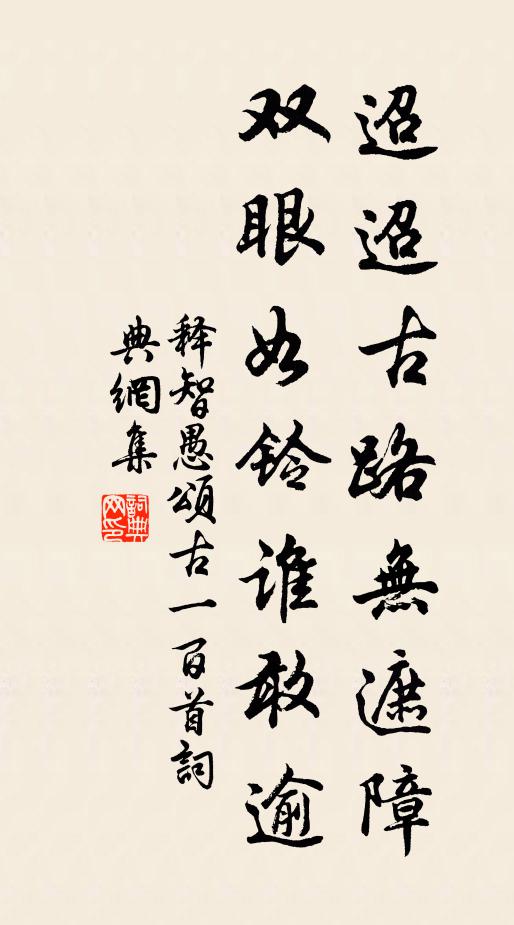 迢迢古路無遮障
双眼如鈴誰敢逾
释智愚頌古一百首詞
典網集
詞典
网印